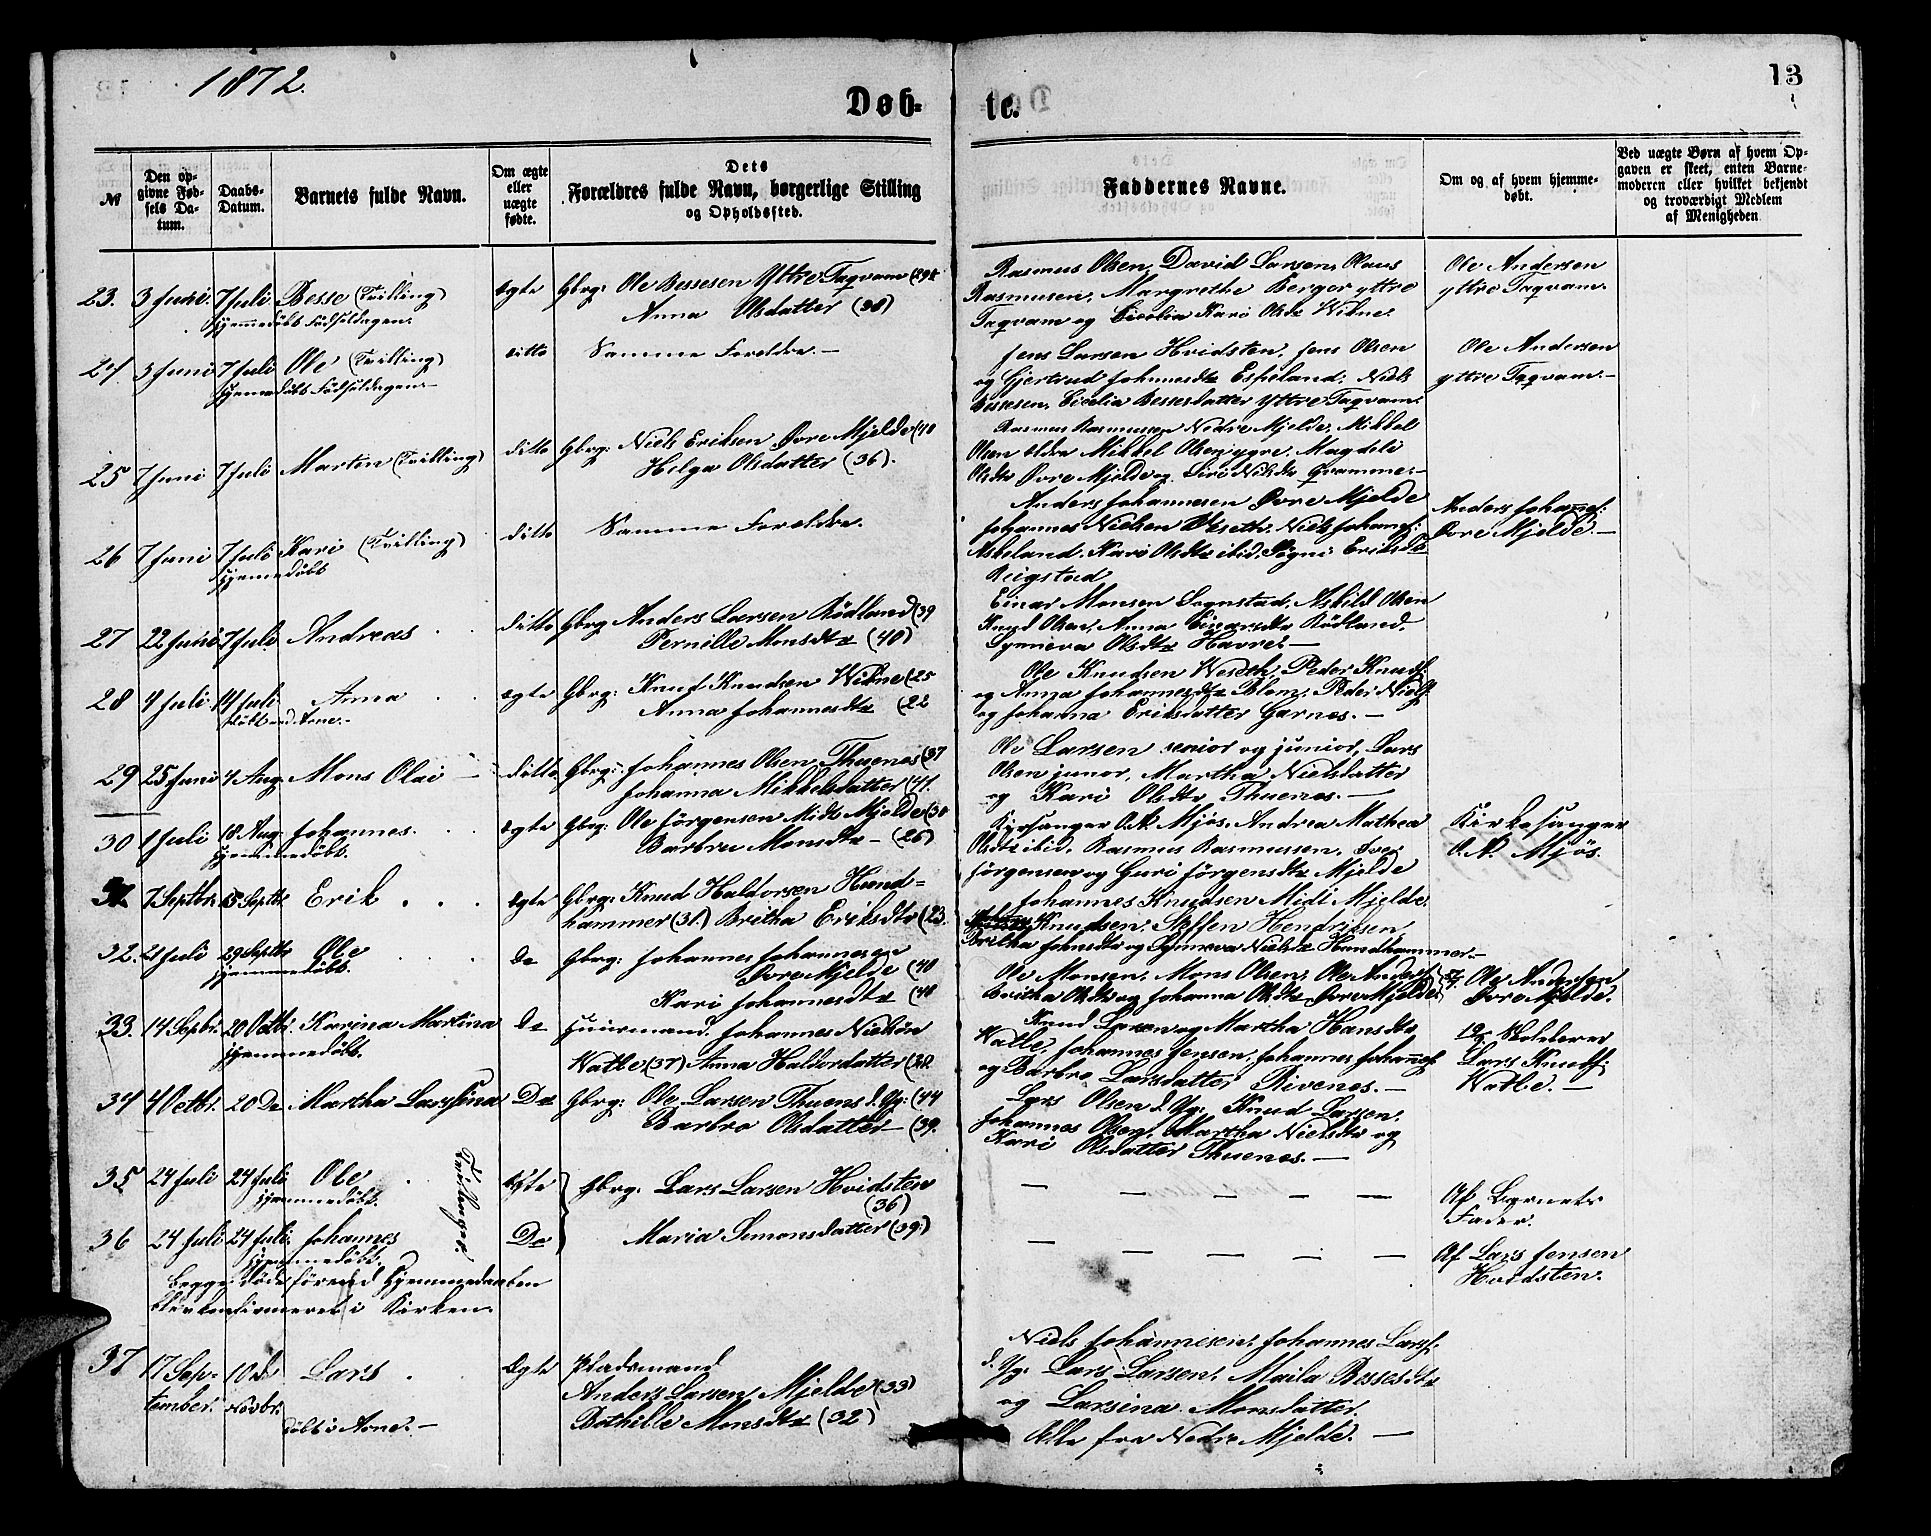 1872.
13
Døb-
te.
№
Den op-
givne Fød-
sels Da-
tum.
Daabs-
Datum.
Barnets fulde Navn.
Om ægte
eller
uægte
fødte.
Dets
Forældres fulde Navn, borgerlige Stilling
og Opholdssted.
Faddernes Navne.
Om og af hvem hjemme-
døbt.
Ved uægte Børn af hvem Op-
gaven er skeet, enten Barne-
moderen eller hvilket bekjendt
og troværdigt Medlem
af Menigheden
23. 3 Juni. 7 Juli Besse (Tvilling) ægte Gbrg: Ole Bessesen Yttre Taqvam (29
hjemmedöbt Födselsdagen.
Anna Olsdatter (38)
Rasmus Olsen, David Larsen, Olaus
Rasmusen, Margrethe Berger yttre
Taqvam og Cicelia Kari Olsdtr Wikne.
Ole Andersen
yttre Taqvam.
24 3 Juni 7 Juli Ole (Tvilling) ditto Samme Foreldre.—
hjemmedöbt Födselsdagen.—
Jens Larsen Hvidsten, Jens Olsen
og Gjertrud Johnnesdtr Espeland, Niels
Bessesen, Cicelia Bessesdatter Yttre Taqvam.
Ole Andersen
yttre Taqvam.—
25 7 Juni 7 Juli Marten (Tvilling) ditto Gbrg: Niels Eriksen Övre Mjelde (40
Helga Olsdatter (36).
Rasmus Rasmussen Nedre Mjelde, Mikkel
Olsen eldre Mikkel Olsen ygre, Magdeli
Olsdtr Övre Mjelde og Siri Nilsdtr Qvamme.—
26 7 Juni 7 Juli Kari (Tvilling) ditto Samme Foreldre.
hjemmedöbt
Anders Johannesen Övre Mjelde
Johannes Nielsen Niels Johanes:
Askeland, Kari Olsdtr ibid, Signi Eriksdtr
Reigstad
Anders Johanes:
Övre Mjelde.—
27 22 Juni 7 Juli Andreas ditto Gbrg Anders Larsen Rödland (39
Pernille Monsdtr (40)
Einar Monsen Sognstad, Askild Olsen
Knud Olsen, Anna Einarsdtr Rödland,
Synneva Olsdtr Havre.—
28 4 Juli 14 Juli Anna ægte Gbrg: Knut Knudsen Wikne (25
döbt ved Arne.—
Anna Johannesdtr (22
Ole Knudsen Weseth, Peder Knuds:
og Anna Johannesdtr Blom, Peder Niels:
og Johanna Eriksdatter Garnes.—
29 25 Juni 4 Aug. Mons Olai — ditto Gbrg: Johannes Olsen Thuenes (37
Johanna Mikkelsdatter (41.
Ole Larsen senior og junior, Lars
Olsen junor, Martha Nielsdatter
og Kari Olsdtr Thuenes.—
30 1 Juli 18 Aug. Johannes. ægte Gbrg: Ole Jörgensen Midt Mjelde (30
hjemmedöbt.
Barbru Monsdtr— (26)
Kirsanger O.A. Mjös, Andrea Mathea
Olsdtr ibid, Rasmus Rasmussen, Iver
Jörgensen og Guri Jörgensdtr Mjelde
Kirkesanger
O.A. Mjös.
31. 7 Septbr. 15 Septbr Erik ægte Gbrg: Knud Haldorsen Hund-
hammer (31.) Britha Eriksdtr (23.
Johannes Knudsen Midt Mjelde,
Knudsen, Steffen Hendriksen,
Britha Johnsdtr og Synneva Nielsdtr Hundhammer.—
32. 21 Juli 29 Septbr Ole Do Gbrg: Johannes Johannesen
hjemmedöbt.
Övre Mjelde (40
Kari Johannesdtr (40
Ole Monsen, Mons Olsen, Ole Anders:
Britha Olsdtr og Johanna Olsdtr Övre Mjelde.
Ole Andersen
Övre Mjelde.
33. 14 Sepbr. 20 Octbr. Karina Martina Do Huusmand. Johannes Nielsen
hjemmedöbt.
Watle (37) Anna Haldordatter (32.
Knud Larsen og Martha Hansdtr
Watle, Johannes Jensen, Johannes Johanes:
og Barbro Larsdatter Rivenes.—
Skolelærer
Lars Knuds:
Watle.—
34 4 Octbr. 20 Do Martha Larssina Do Gbrg: Ole Larsen Thuens d. Yg: (44
Barbro Olsdatter— (39.
Lars Olsen d. Yg. Knud Larsen,
Johannes Olsen, Martha Nielsdtr og
Kari Olsdatter Thuenes.—
35 24 Juli 24 Juli Ole ægte Gbrg: Lars Larsen Hvidsten
hjemmedöbt.
(36)
Tvillinger.
Af Barnets
Fader.
36 24 Juli 24 Juli. Johannes Do Maria Simonsdatter (39.)
hjemmedöbt.
Begge döde förend Hjemmedaaben
blev confirmeret i Kirken.
Af Lars Jensen
Hvidsten.
37 17 Sep- 10de Lars ægte Pladsmand
tember. Novbr.
Anders Larsen Mjelde (33)
döbt i Arne.—
Bothille Monsdtr (32)
Niels Johannesen, Johannes Lars:
d. Yg. Lars Larsen, Maila Bessesdtr
og Larsina Monsdatter,
Alle fra Nedre Mjelde.—